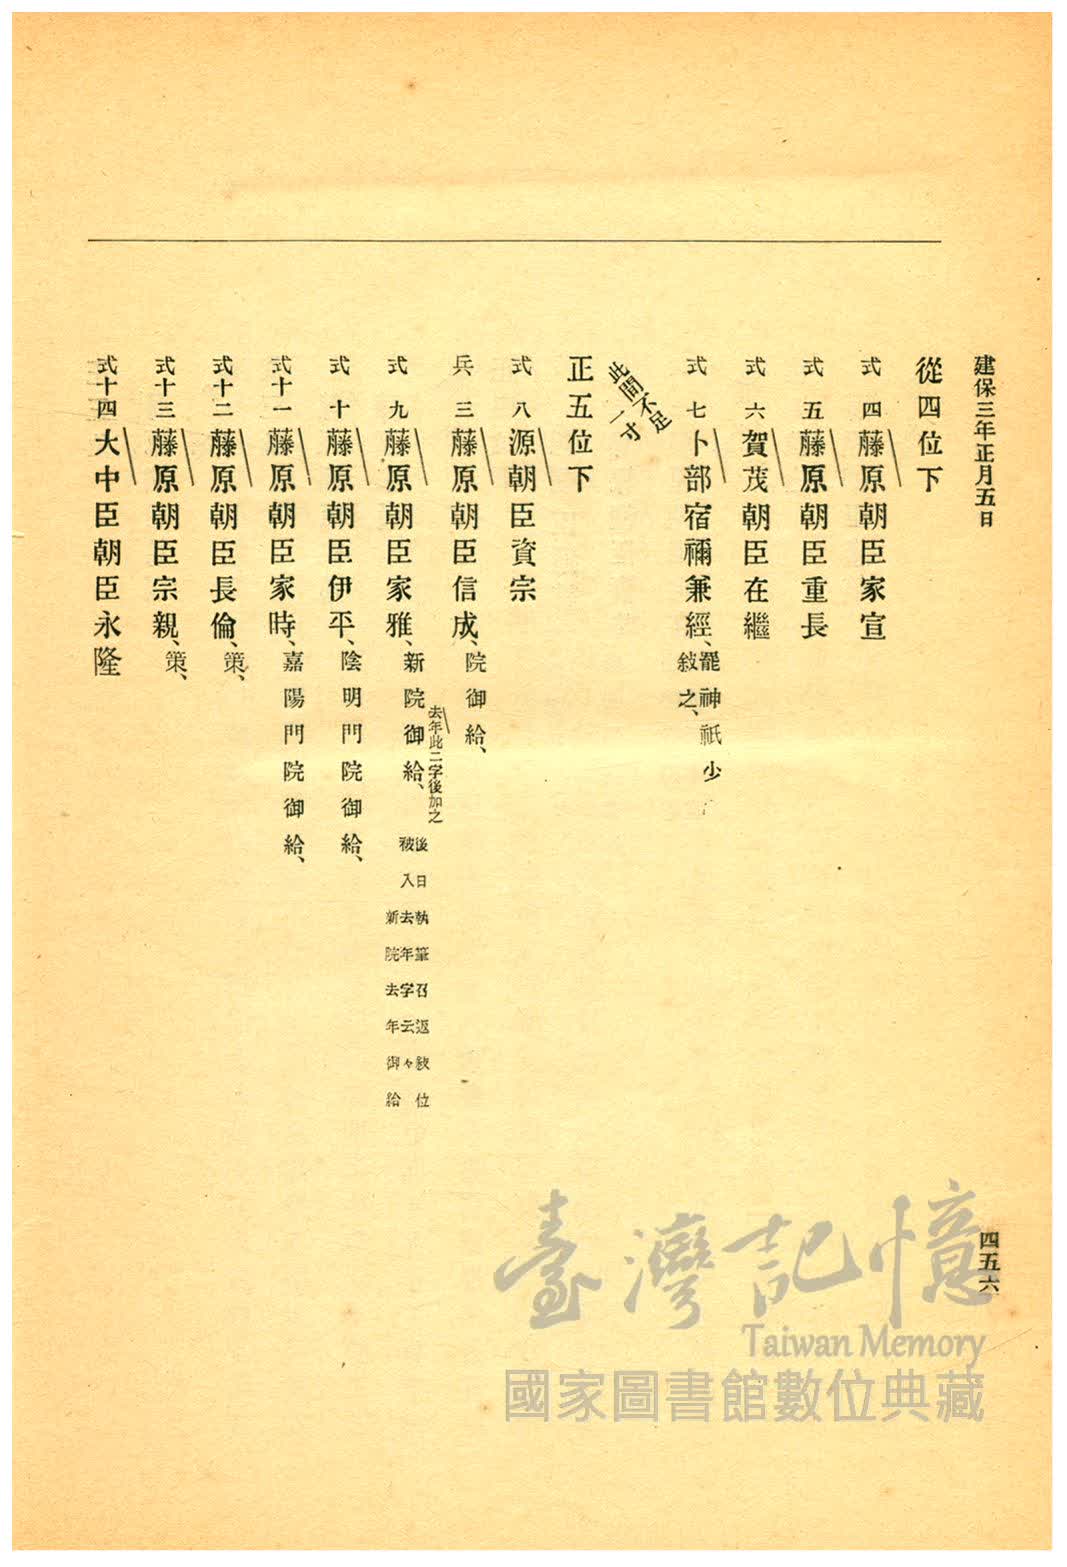 建保三年正月五日
四五六
從四位下
式 四 藤原朝臣家宣
式 五 藤原朝臣重長
式 六 賀茂朝臣在繼
式 七 卜部宿禰兼經、罷神祇少
敍之、
此間不足
一寸
正五位下
式 八 源朝臣資宗
兵 三 藤原朝臣信成、院御給、
式 九 藤原朝臣家雅、新院御給、
去年此二字後加之
後日執筆召返敍位
被入去年字云々
新院去年御給
式 十 藤原朝臣伊平、陰明門院御給、
式十一 藤原朝臣家時、嘉陽門院御給、
式十二 藤原朝臣長倫、策、
式十三 藤原朝臣宗親、策、
式十四 大中臣朝臣永隆
臺灣記憶
Taiwan Memory
國家圖書館數位典藏